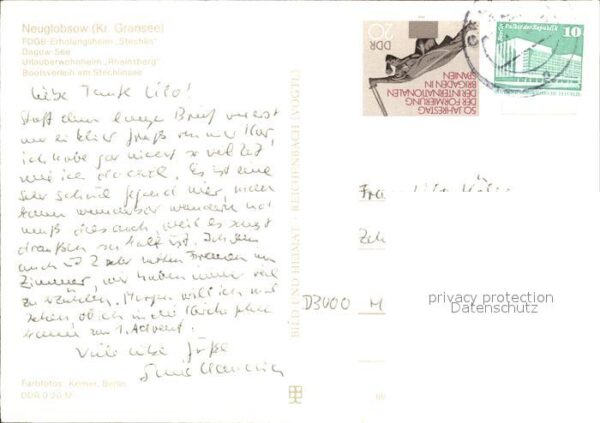 Neuglobsow (Kr. Gransee)
FDGB-Erholungsheim „Stechlin"
Dagow-See
Urlauberwohnheim „Rheinsberg"
Bootsverleih am Stechlinsee
Liebe Tante Lilo!
Statt einen langen Brief vorerst
nur ein kleiner Gruß von mir
ich habe gar nicht so viel Zeit
wie ich dachte. Es ist eine
sehr schöne Gegend hier, man
kann wunderbar wandern und
muß dies auch, weil es sonst
draußen zu kalt ist. Ich bin
auch mit 2 sehr netten Frauen im
Zimmer, wir haben immer viel
zu erzählen. Morgen will ich mal
sehen ob ich in die Kirche gehen
kann zum 1. Advent.
Viele liebe Grüße
Farbfotos: Kerner, Berlin
BILD UND HEIMAT REICHENBACH (VOGTL)
50. JAHRESTAG
DER FORMIERUNG
DER INTERNATIONALEN
BRIGADEN IN
SPANIEN
DDR
20
Berlin, Palast der Republik
10
Frau Lilo
D3400 M
privacy protection
Datenschutz